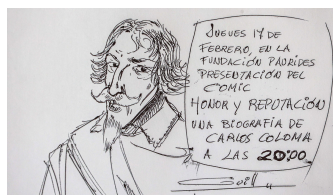 JUEVES 17 DE
FEBRERO, EN LA
FUNDACIÓN PAURIDES
PRESENTACIÓN DEL
COMIC
HONOR Y REPUTACIÓN
UNA BIOGRAFIA DE
CARLOS COLOMA
A LAS 20:00